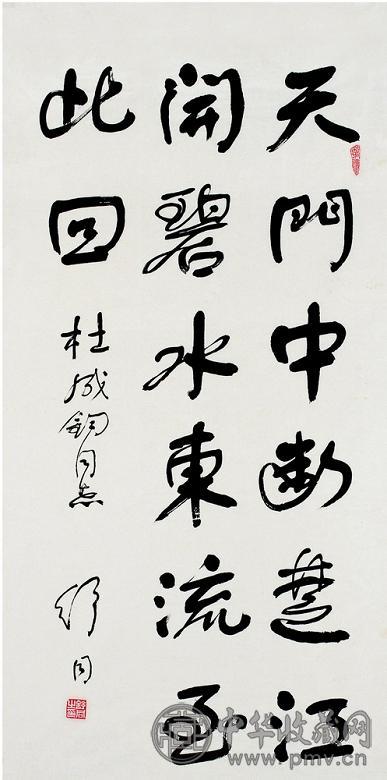 天門中斷楚江
開碧水東流至
此回
杜成鈞同志
舒同
中华收藏网
www.pmv.cn